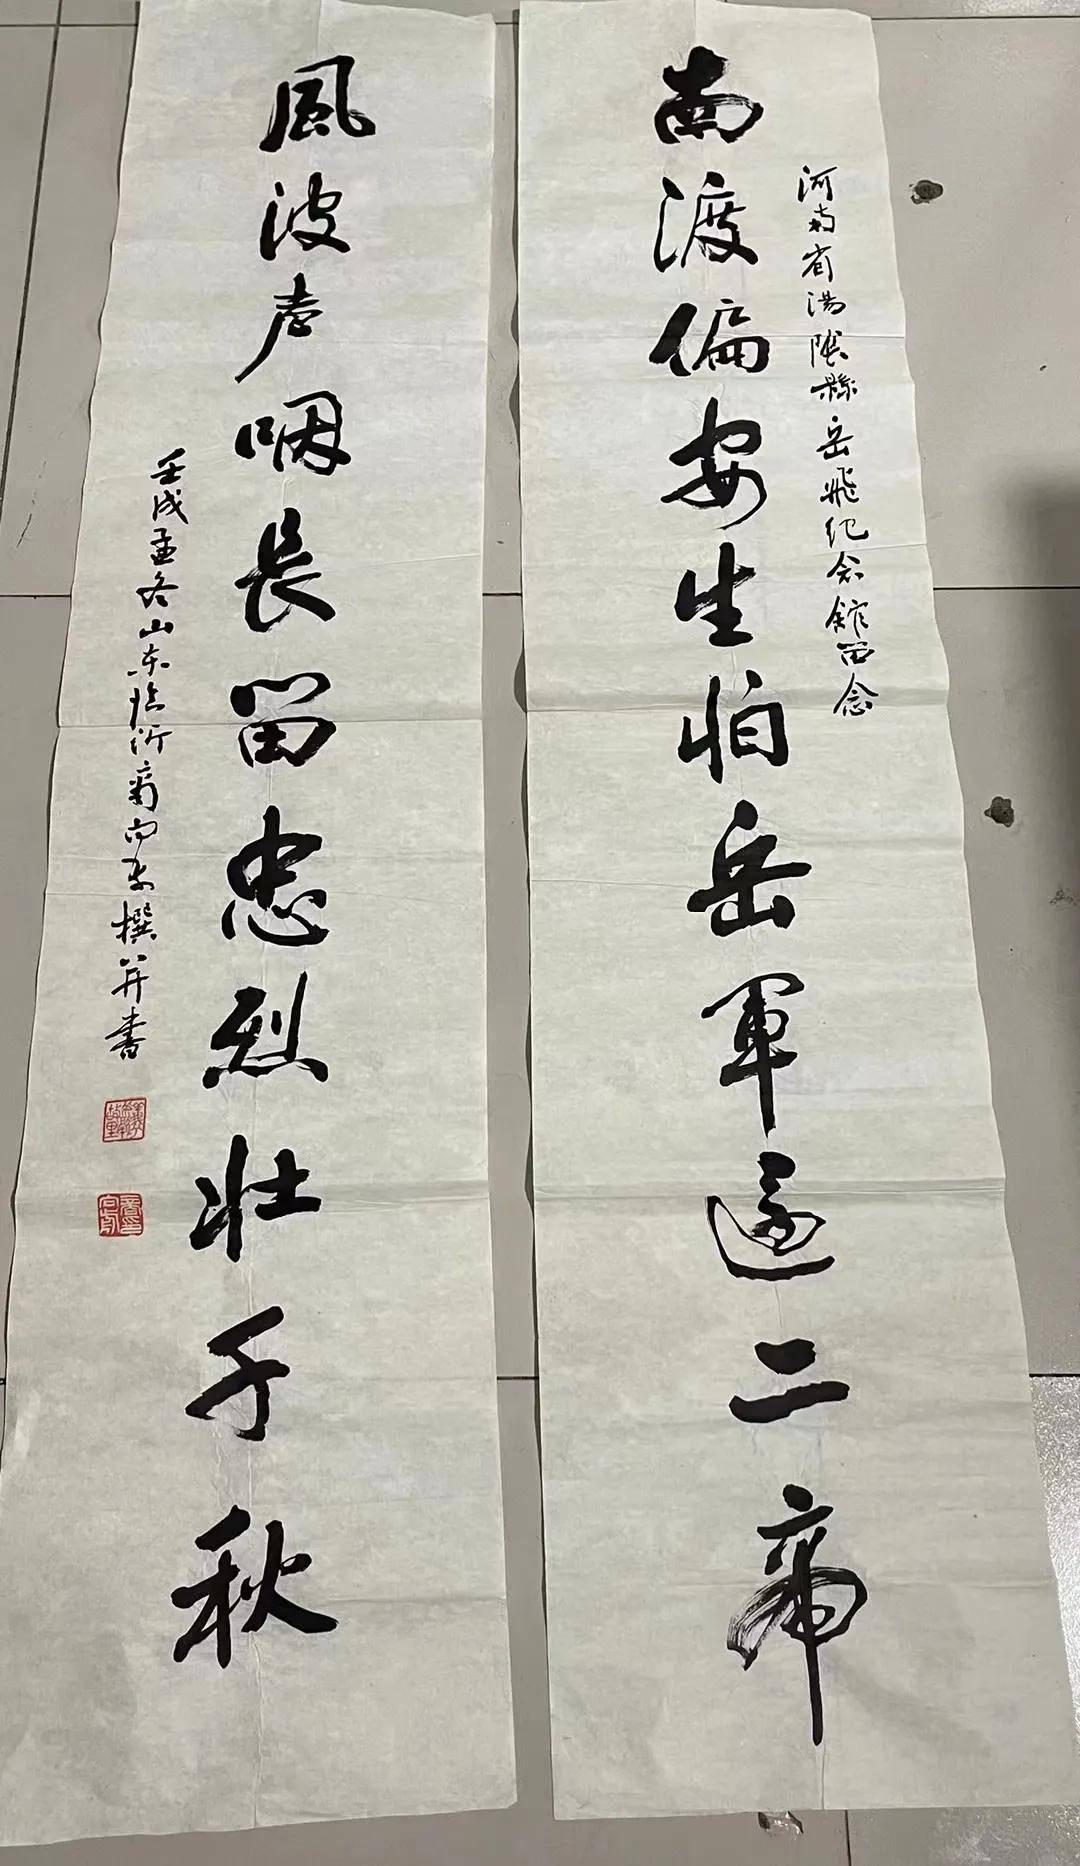 南渡偏安生怕岳軍還二帝
河南省湯陰縣岳飛紀念館留念
風波声咽長留忠烈壯千秋
壬戌孟冬山东临沂撰并書